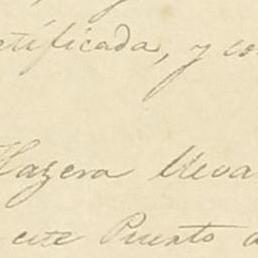 etificada, y co
Hazera lleva
este Puerto a